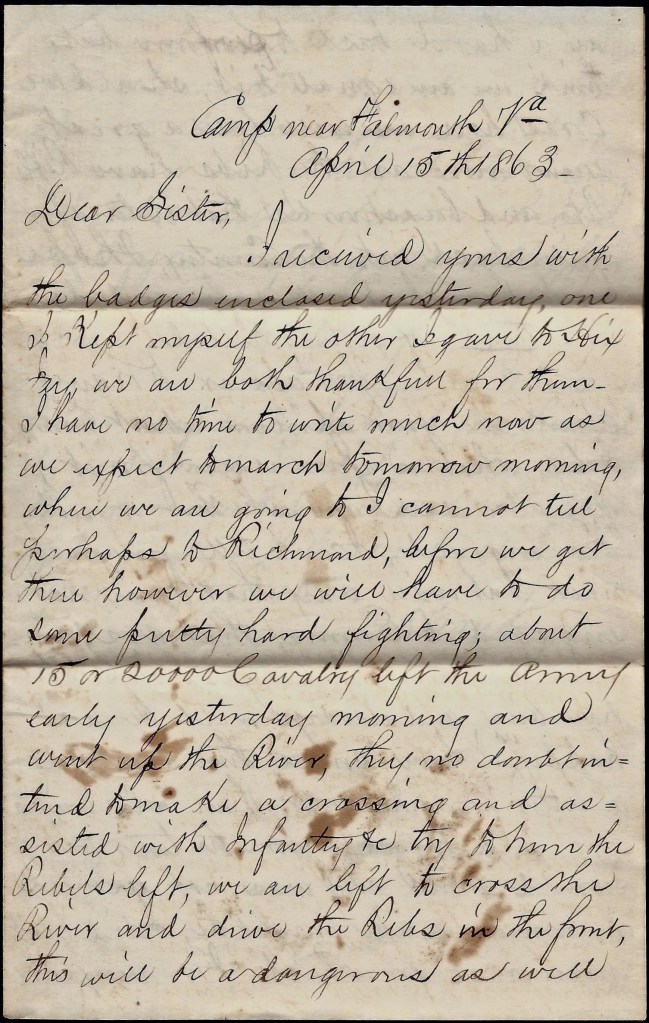 Camp near Falmouth Va
April 15th 1863
Dear Sister,
I received yours with
the badges enclosed yesterday, one
I kept myself the other I gave to Hix
we are both thankfull for them
I have no time to write much now as
we expect to march tomorrow morning,
where we are going to I cannot tell
perhaps to Richmond, before we get
there however we will have to do
some pretty hard fighting; about
15 or 20000 Cavalry left the Army
early yesterday morning and
went up the River, they no doubt in=
tend to make a crossing and as=
sisted with Infantry &c try to turn the
Rebels left, we are left to cross the
River and drive the Rebs in the front,
this will be a dangerous as well